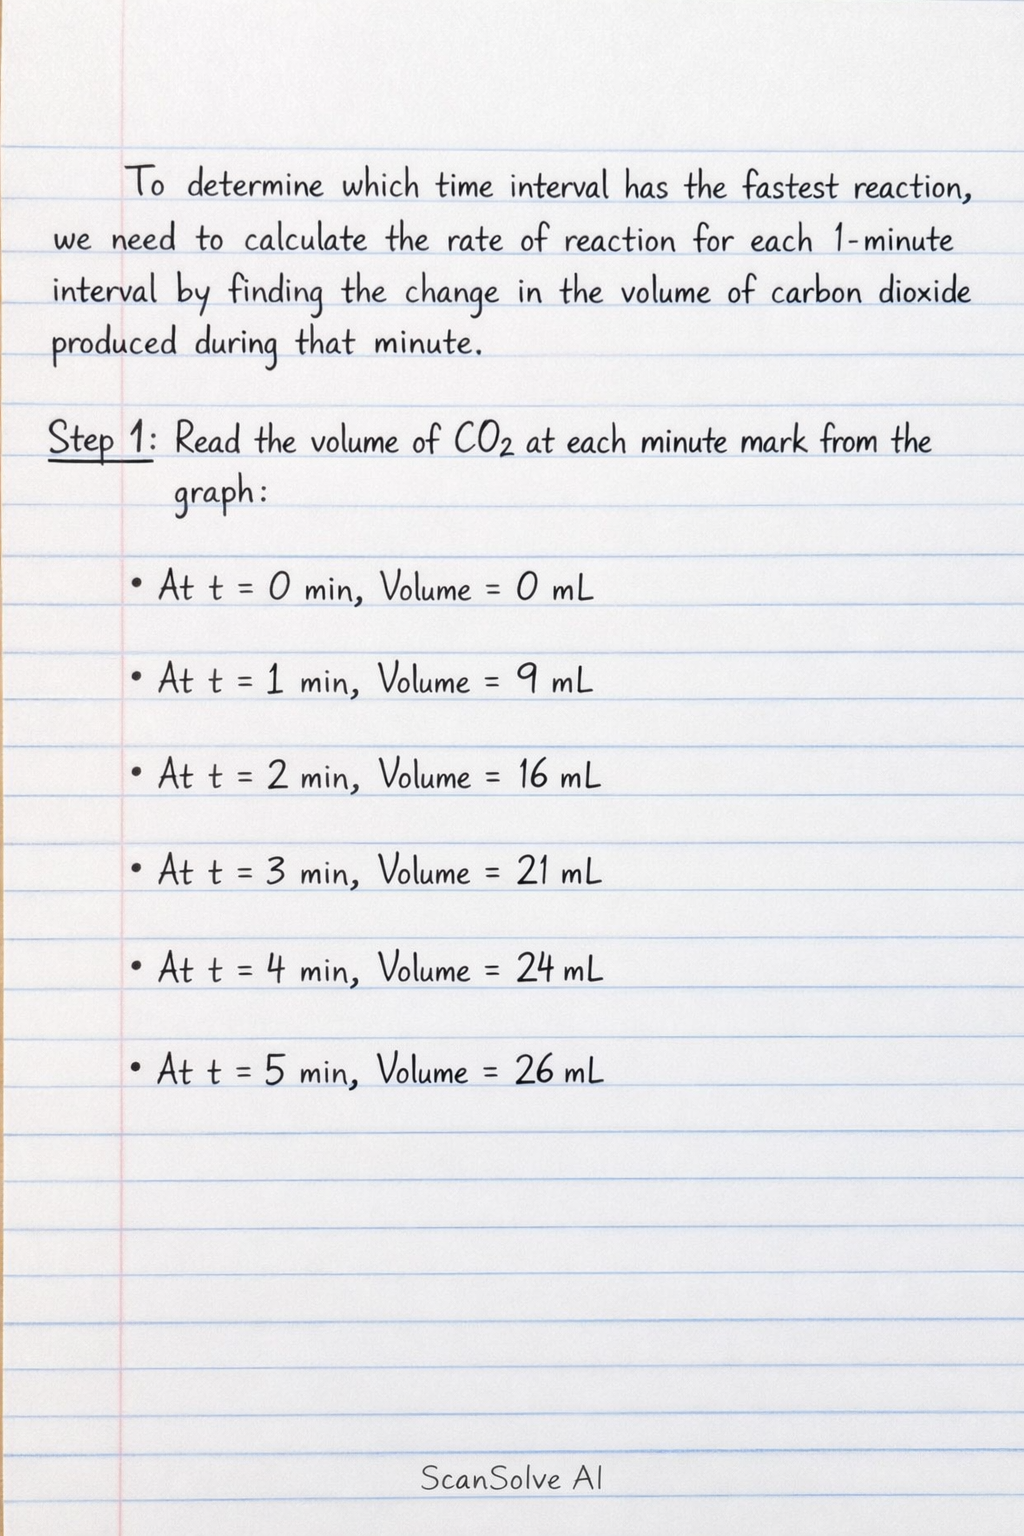 To determine which time interval has the fastest reaction,
we need to calculate the rate of reaction for each 1-minute
interval by finding the change in the volume of carbon dioxide
produced during that minute.
Step 1: Read the volume of CO₂ at each minute mark from the
graph:
• At t = 0 min, Volume = 0 mL
• At t = 1 min, Volume = 9 mL
• At t = 2 min, Volume = 16 mL
• At t = 3 min, Volume = 21 mL
• At t = 4 min, Volume = 24 mL
• At t = 5 min, Volume = 26 mL
ScanSolve AI